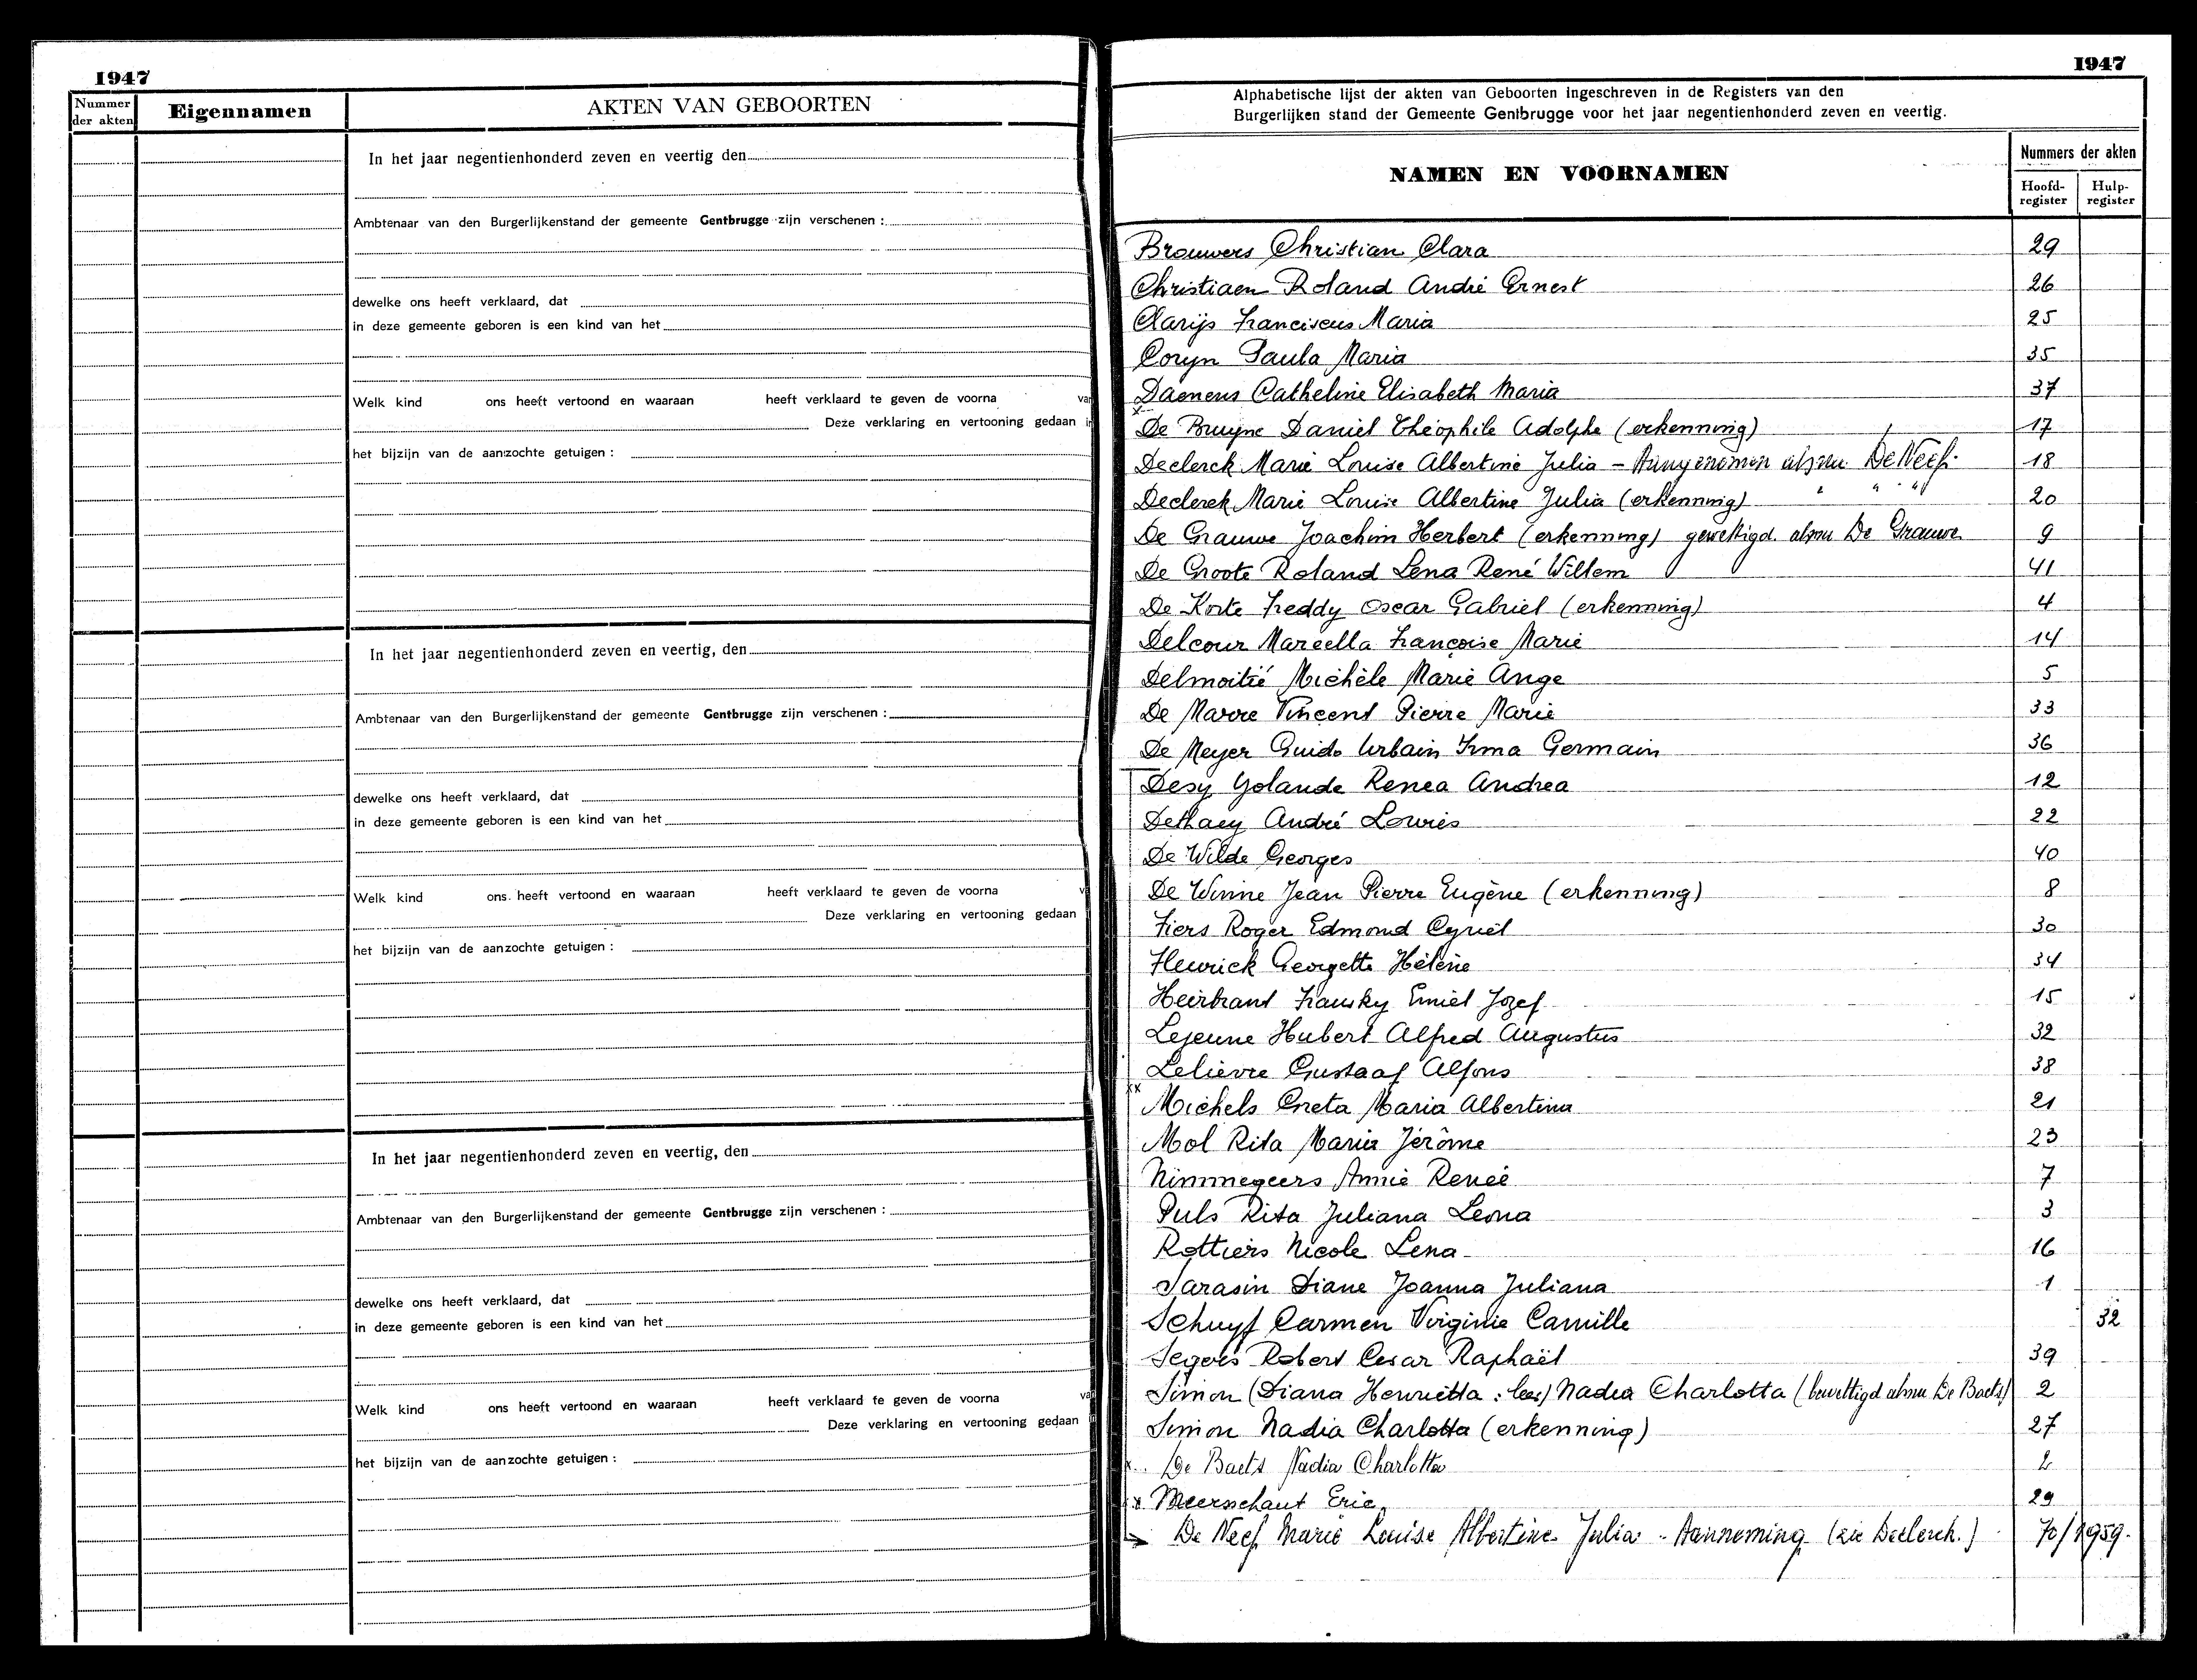 1947
Nummer der akten
Eigennamen
AKTEN VAN GEBOORTEN
In het jaar negentienhonderd zeven en veertig den
Ambtenaar van den Burgerlijkenstand der gemeente Gentbrugge zijn verschenen :
dewelke ons heeft verklaard, dat
in deze gemeente geboren is een kind van het
Welk kind ons heeft vertoond en waaraan heeft verklaard te geven de voorna va
Deze verklaring en vertooning gedaan i
het bijzijn van de aanzochte getuigen :
In het jaar negentienhonderd zeven en veertig, den
Ambtenaar van den Burgerlijkenstand der gemeente Gentbrugge zijn verschenen :
dewelke ons heeft verklaard, dat
in deze gemeente geboren is een kind van het
Welk kind ons heeft vertoond en waaraan heeft verklaard te geven de voorna v
Deze verklaring en vertooning gedaan
het bijzijn van de aanzochte getuigen :
In het jaar negentienhonderd zeven en veertig, den
Ambtenaar van den Burgerlijkenstand der gemeente Gentbrugge zijn verschenen :
dewelke ons heeft verklaard, dat
in deze gemeente geboren is een kind van het
Welk kind ons heeft vertoond en waaraan heeft verklaard te geven de voorna va
Deze verklaring en vertooning gedaan
het bijzijn van de aanzochte getuigen :
1947
Alphabetische lijst der akten van Geboorten ingeschreven in de Registers van den
Burgerlijken stand der Gemeente Gentbrugge voor het jaar negentienhonderd zeven en veertig.
NAMEN EN VOORNAMEN
Nummers der akten
Hoofd-register
Hulp-register
Brouwers Christian Clara 29
Christiaen Roland André Ernest 26
Clarijs Franciscus Maria 25
Coryn Paula Maria 35
Daenens Catheline Elisabeth Maria 37
x De Bruyne Daniel Théophile Adolphe (erkenning) 17
Declerck Marie Louise Albertine Julia - Aangenomen alsnu De Neef. 18
Declerck Marie Louise Albertine Julia (erkenning) " " " 20
De Grauwe Joachim Herbert (erkenning) gewettigd alsnu De Grauwe 9
De Groote Roland Lena René Willem 41
De Korte Freddy Oscar Gabriel (erkenning) 4
Delcour Marcella Françoise Marie 14
Delmoitié Michèle Marie Ange 5
De Marre Vincent Pierre Marie 33
De Meyer Guido Urbain Irma Germain 36
Desy Yolande Renea Andrea 12
Dethaey André Lowies 22
De Wilde Georges 40
De Winne Jean Pierre Eugène (erkenning) 8
Fiers Roger Edmond Cyriel 30
Fleurick Georgette Hélène 34
Heirbrant Fransky Emiel Jozef 15
Lejeune Hubert Alfred Augustus 32
Lelièvre Gustaaf Alfons 38
xx Michels Greta Maria Albertina 21
Mol Rita Maria Jérôme 23
Nimmegeers Annie Renée 7
Puls Rita Juliana Leona 3
Rottiers Nicole Lena 16
Sarasin Diane Joanna Juliana 1
Schuyf Carmen Virginie Camille 32
Segers Robert Cesar Raphaël 39
Simon (Diana Henrietta : lees) Nadia Charlotta (bewettigd alsnu De Baets) 2
Simon Nadia Charlotta (erkenning) 27
x De Baets Nadia Charlotta 2
x Meerschaut Eric 29
De Neef Marie Louise Albertine Julia - Aanneming (zie Declerck.) 70/1959.